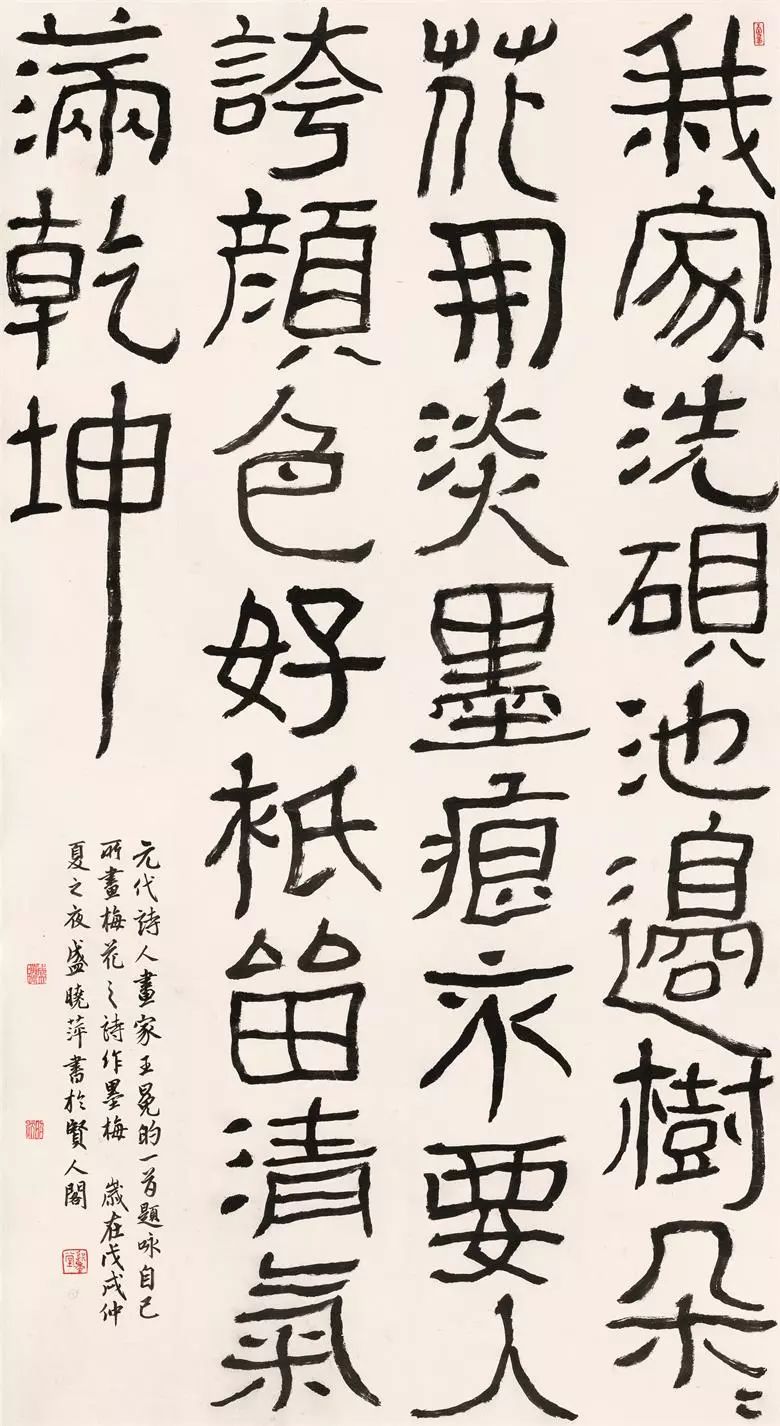 我家洗硯池邊樹朵〻
花開淡墨痕不要人
誇顏色好祇留清氣
滿乾坤
元代詩人畫家王冕的一首題咏自己
所畫梅花之詩作墨梅 歲在戊戌仲
夏之夜盛曉萍書於賢人閣